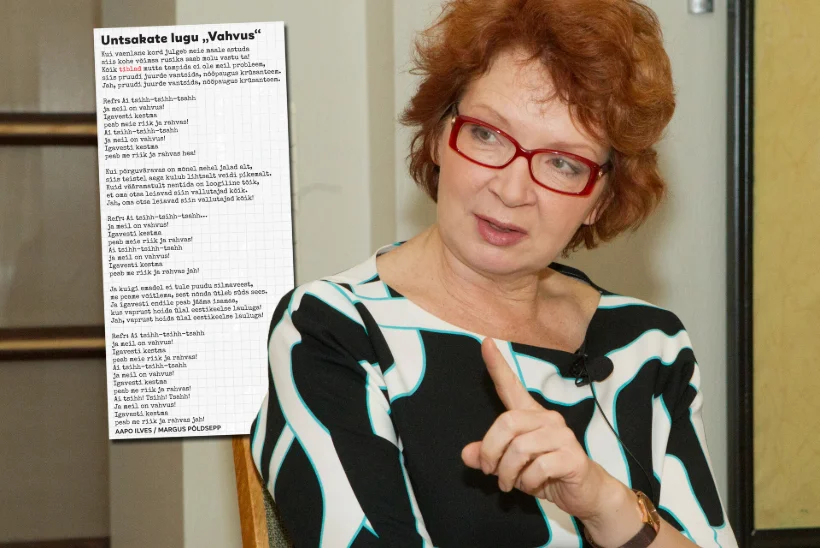 Untsakate lugu „Vahvus“
Kui vaenlane kord julgeb meie maale astuda
siis kohe võimsa rusika saab molu vastu ta!
Kõik tiblad mutta tampida ei ole meil probleem,
siis pruudi juurde vantsida, nööpaugus krüsanteem.
Jah, pruudi juurde vantsida, nööpaugus krüsanteem.
Refr: Ai tsihh-tsihh-tsahh
ja meil on vahvus!
Igavesti kestma
peab meie riik ja rahvas!
Ai tsihh-tsihh-tsahh
ja meil on vahvus!
Igavesti kestma
peab me riik ja rahvas hea!
Kui põrguväravas on mõnel mehel jalad alt,
siis teistel aega kulub lihtsalt veidi pikemalt.
Kuid vääramatult nentida on loogiline tõik,
et oma otsa leiavad siin vallutajad kõik.
Jah, oma otsa leiavad siin vallutajad kõik!
Refr: Ai tsihh-tsihh-tsahh...
ja meil on vahvus!
Igavesti kestma
peab meie riik ja rahvas!
Ai tsihh-tsihh-tsahh
ja meil on vahvus!
Igavesti kestma
peab me riik ja rahvas jah!
Ja kuigi emadel ei tule puudu silmaveest,
me peame võitlema, sest nõnda ütleb süda sees.
Ja igavesti endile peab jääma isamaa,
kus vaprust hoida ülal eestikeelse lauluga!
Jah, vaprust hoida ülal eestikeelse lauluga!
Refr: Ai tsihh-tsihh-tsahh
ja meil on vahvus!
Igavesti kestma
peab meie riik ja rahvas!
Ai tsihh-tsihh-tsahh
ja meil on vahvus!
Igavesti kestma
peab me riik ja rahvas!
Ai tsihh! Tsihh! Tsahh!
Ja meil on vahvus!
Igavesti kestma
peab me riik ja rahvas jah!
AAPO ILVES / MARGUS PÕLDSEPP